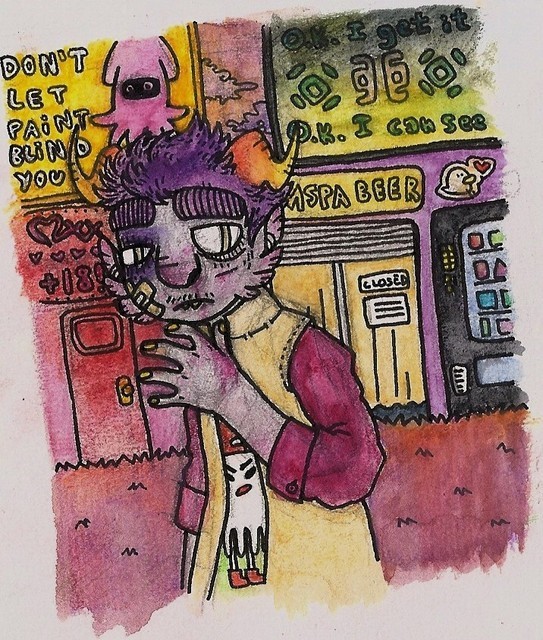 DON'T
LET
PAINT
BLIND
YOU
O.K. I get it
O.K. I can see
MSPA BEER
CLOSED
+18!